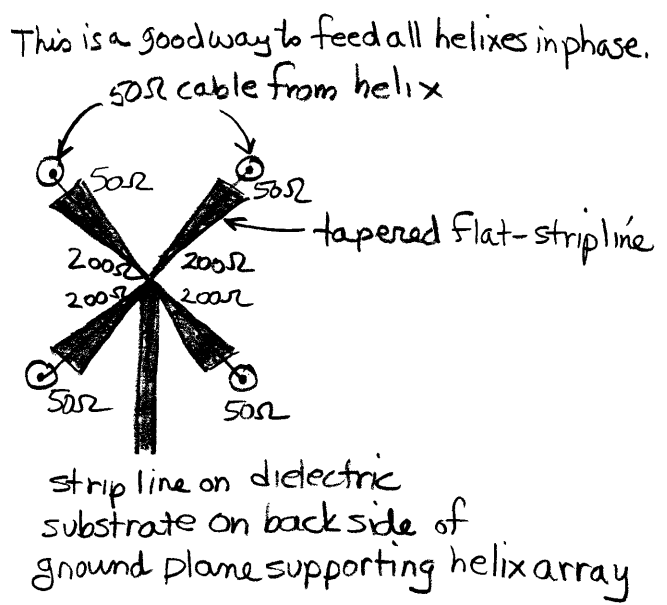 This is a good way to feed all helixes in phase.
50Ω cable from helix
50Ω 50Ω
tapered flat-stripline
200Ω 200Ω
200Ω 200Ω
50Ω 50Ω
strip line on dielectric
substrate on back side of
ground plane supporting helix array